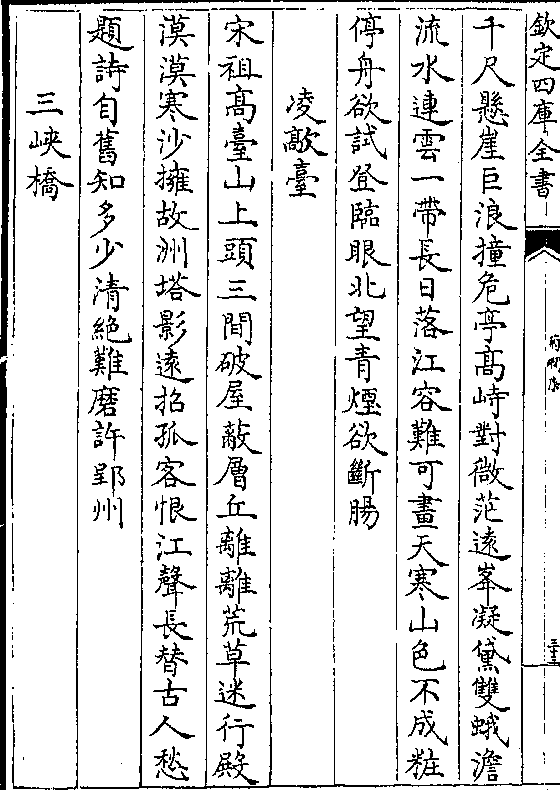 欽定四庫全書
千尺懸崖巨浪撞危亭髙峙對微茫逺峯凝黛雙蛾澹
流水連雲一帶長日落江容難可畫天寒山色不成粧
停舟欲試登臨眼北望青煙欲斷腸
凌歊臺
宋祖髙臺山上頭三間破屋蔽層丘離離荒草迷行殿
漠漠寒沙擁故洲塔影逺招孤客恨江聲長替古人愁
題詩自舊知多少清絶難磨許郢州
三峽橋